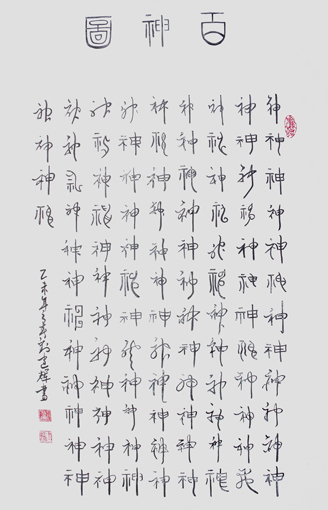 百神圖
神神神神神神神神神神神神
神神神神神神神神神神神神
神神神神神神神神神神神神
神神神神神神神神神神神神
神神神神神神神神神神神神
神神神神神神神神神神神神
神神神神神神神神神神神神
神神神神神神神神神神神神
神神神神
乙未年之書